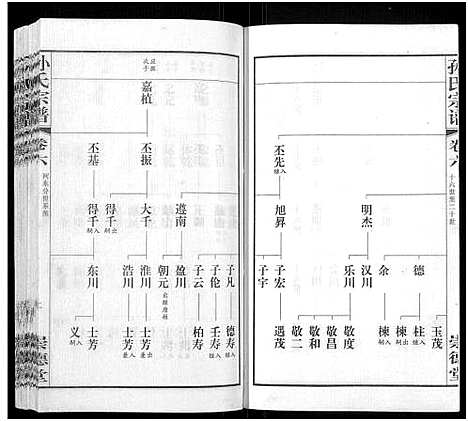 孙氏宗谱
卷六
十六世至二十世
崇德堂
丕先 继入
明杰
旭昇
德
余
汉川
乐川
子宏
子宇
玉茂
柱 继入
楝 嗣出
楝 嗣入
敬度
敬昌
敬和
敬二
遇茂
孙氏宗谱
卷六
崇德堂
嘉植
丕振
丕基
遵南
大千
得千 嗣出
得千 嗣入
子凡
子伦
子云
盈川
朝元
淮川
浩川
东川
德寿 继入
壬寿 继出
柏寿
士芳 兼出
士芳 兼入
士芳
义 嗣入